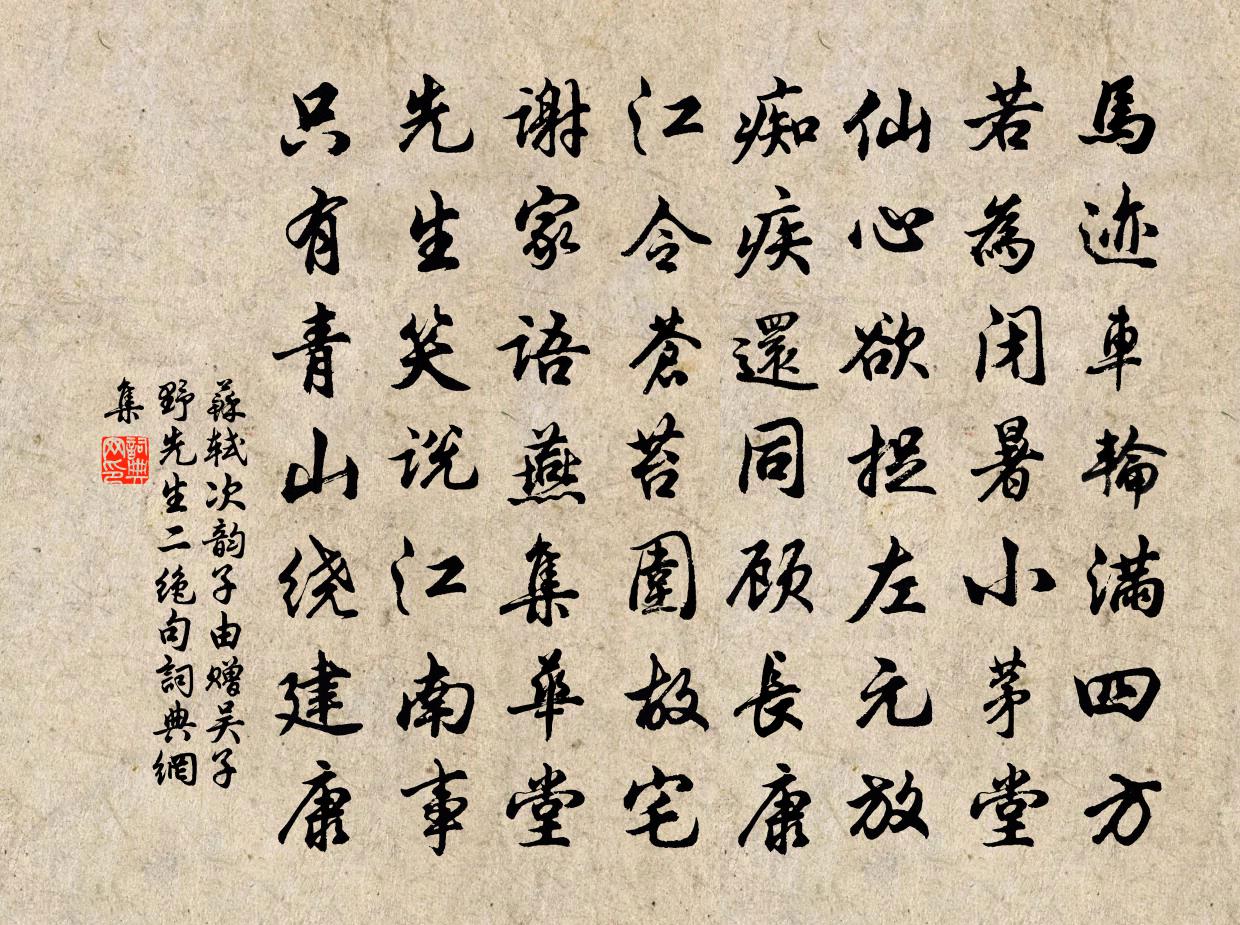 馬迹車輪滿四方
若為閉暑小茅堂
仙心欲捉左元放
痴疾還同顾長康
江令蒼苔圍故宅
謝家語燕集華堂
先生笑説江南事
只有青山绕建康
蘇軾次韵子由赠吴子
野先生二绝句詞典網
集
詞典网印